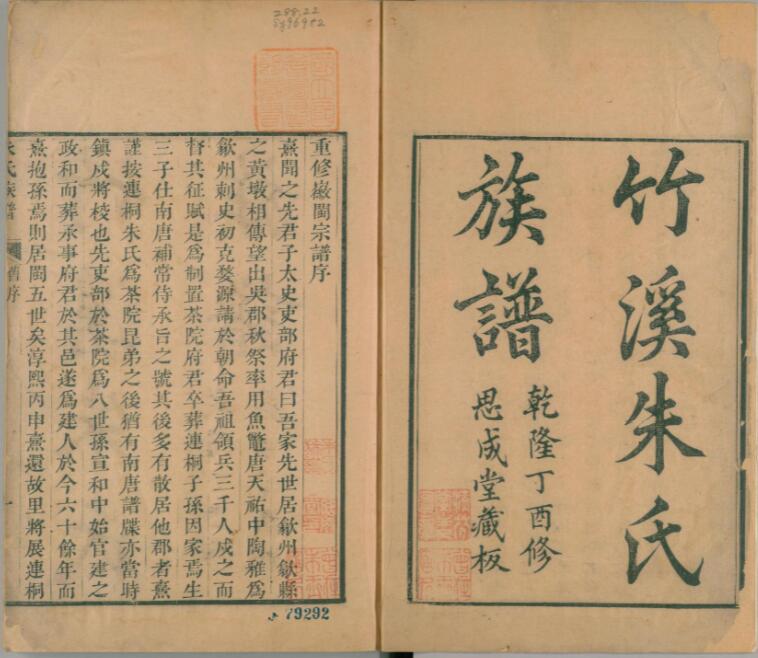 竹溪朱氏
族譜
乾隆丁酉修
思成堂藏板
288.22
79292
重修徽閩宗譜序
熹聞之先君子太史吏部府君曰吾家先世居歙州歙縣
之黃墩相傳望出吳郡秋祭率用魚鼈唐天祐中陶雅爲
歙州刺史初克婺源請於朝命吾祖領兵三千人戍之而
督其征賦是爲制置茶院府君卒葬連桐子孫因家焉生
三子仕南唐補常侍承旨之號其後多有散居他郡者熹
謹按連桐朱氏爲茶院昆弟之後猶有南唐譜牒亦當時
鎮戍將校也先吏部於茶院爲八世孫宣和中始官建之
政和而葬承事府君於其邑遂爲建人於今六十餘年而
熹抱孫焉則居閩五世矣淳熙丙申熹還故里將展連桐
朱氏族譜
舊序
一